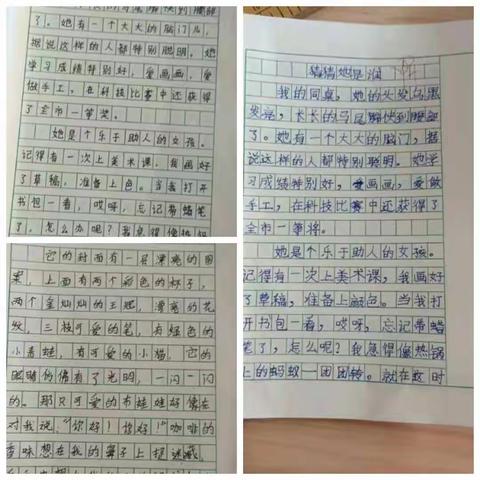 了。她有一个大大的脑门儿，
据说这样的人都特别聪明。她
学习成绩特别好，爱画画，爱
做手工，在科技比赛中还获得
了全市一等奖。
她是个乐于助人的女孩。
记得有一次上美术课，我画好
了草稿，准备上色。当我打开
书包一看，哎呀，忘记带蜡笔
了，怎么办呢？我急得像热锅
它的封面有一层漂亮的图
案，上面有两个彩色的杯子，
两个金灿灿的王冠，漂亮的花
纹，三枝可爱的笔，有绿色的
小青蛙，有可爱的小猫，它的
眼睛仿佛有了光明，一闪一闪
的。那只可爱的布娃娃好像在
对我说：“你好！你好！”咖啡的
香味想在我的鼻子上捉迷藏。
猜猜她是谁
我的同桌，她的头发乌黑
发亮，长长的马尾辫快到腰部
了。她有一个大大的脑门，据
说这样的人都特别聪明。她学
习成绩特别好，爱画画，爱做
手工，在科技比赛中还获得了
全市一等将。
她是个乐于助人的女孩。
记得有一次上美术课，我画好
了草稿，准备上颜色。当我打
开书包一看，哎呀，忘记带蜡
笔了，怎么呢？我急得像热锅
上的蚂蚁一团团转。就在这时